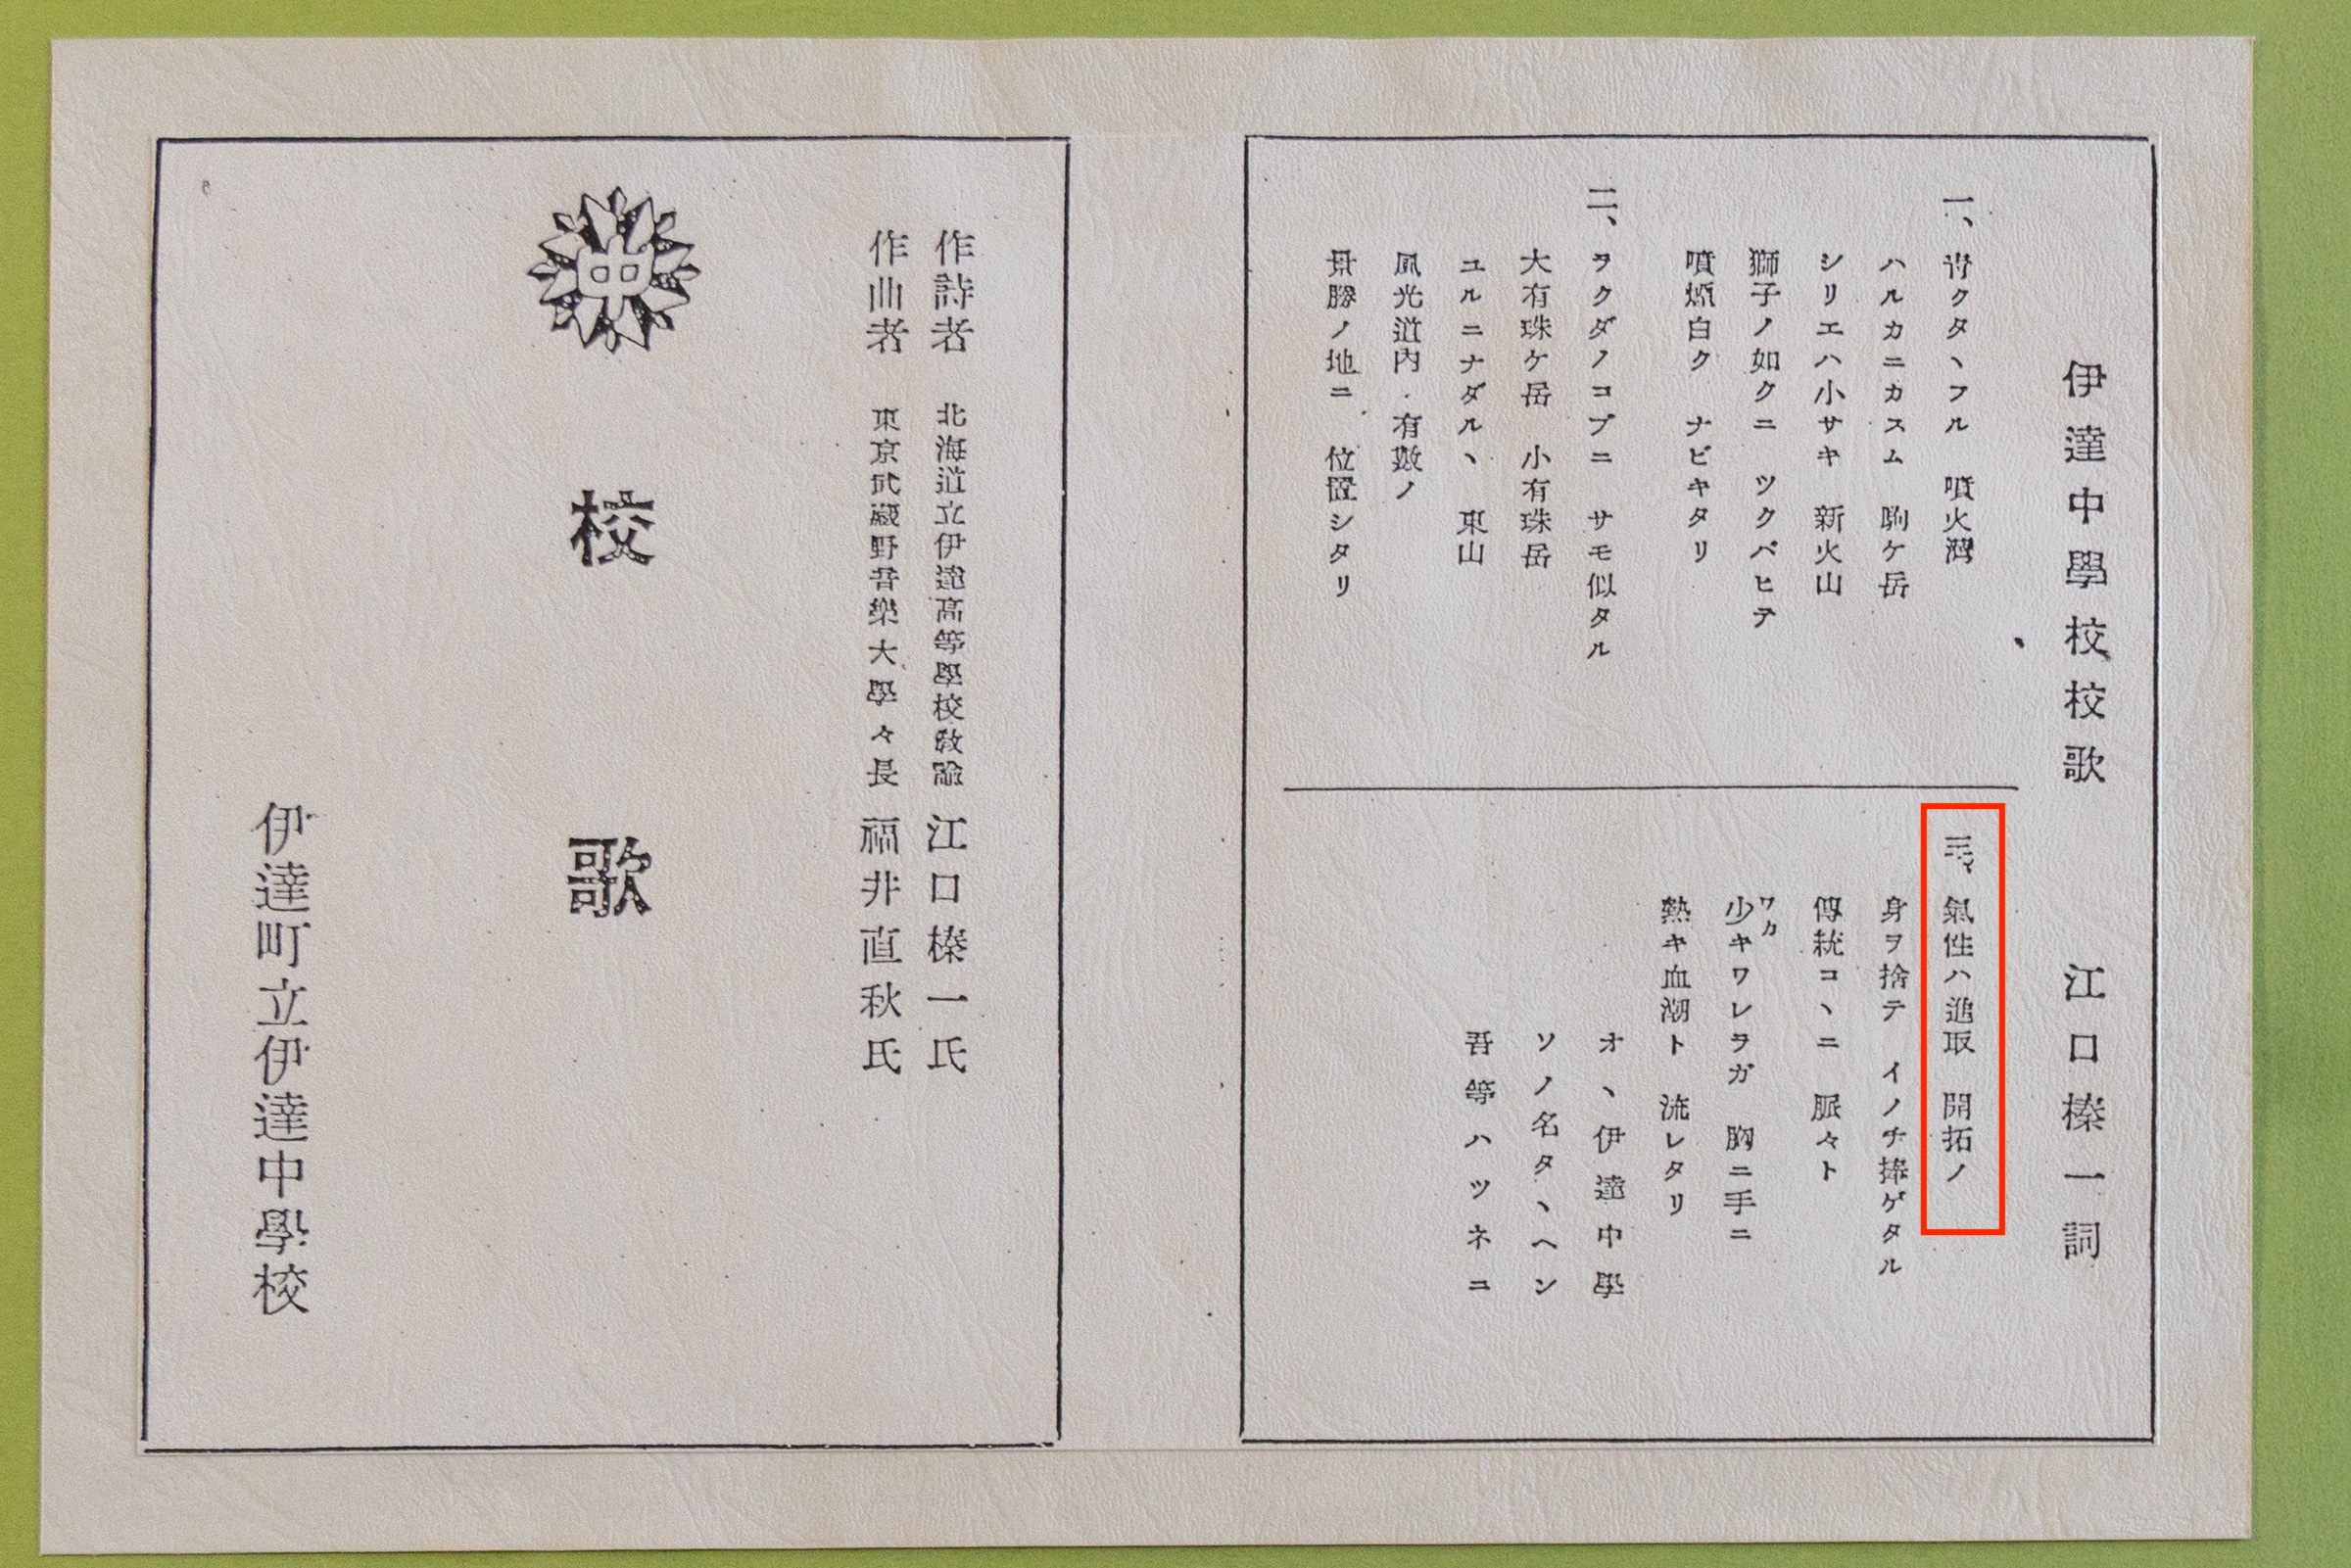 伊達中學校校歌　江口榛一詞
一、靑クタヽフル　噴火灣
ハルカニカスム　駒ケ岳
シリエハ小サキ　新火山
獅子ノ如クニ　ツクバヒテ
噴煙白ク　ナビキタリ
二、ラクダノコブニ　サモ似タル
大有珠ケ岳　小有珠岳
ユルニナダルヽ　東山
風光道内　有數ノ
景勝ノ地ニ　位置シタリ
三、氣性ハ進取　開拓ノ
身ヲ捨テ　イノチ捧ゲタル
傳統コヽニ　脈々ト
少キワレラガ　胸ニ手ニ
ワカ
熱キ血潮ト　流レタリ
オヽ伊達中學
ソノ名タヽヘン
吾等ハツネニ
作詩者　北海道立伊達高等學校敎諭　江口榛一氏
作曲者　東京武藏野音樂大學々長　福井直秋氏
中
校歌
伊達町立伊達中學校